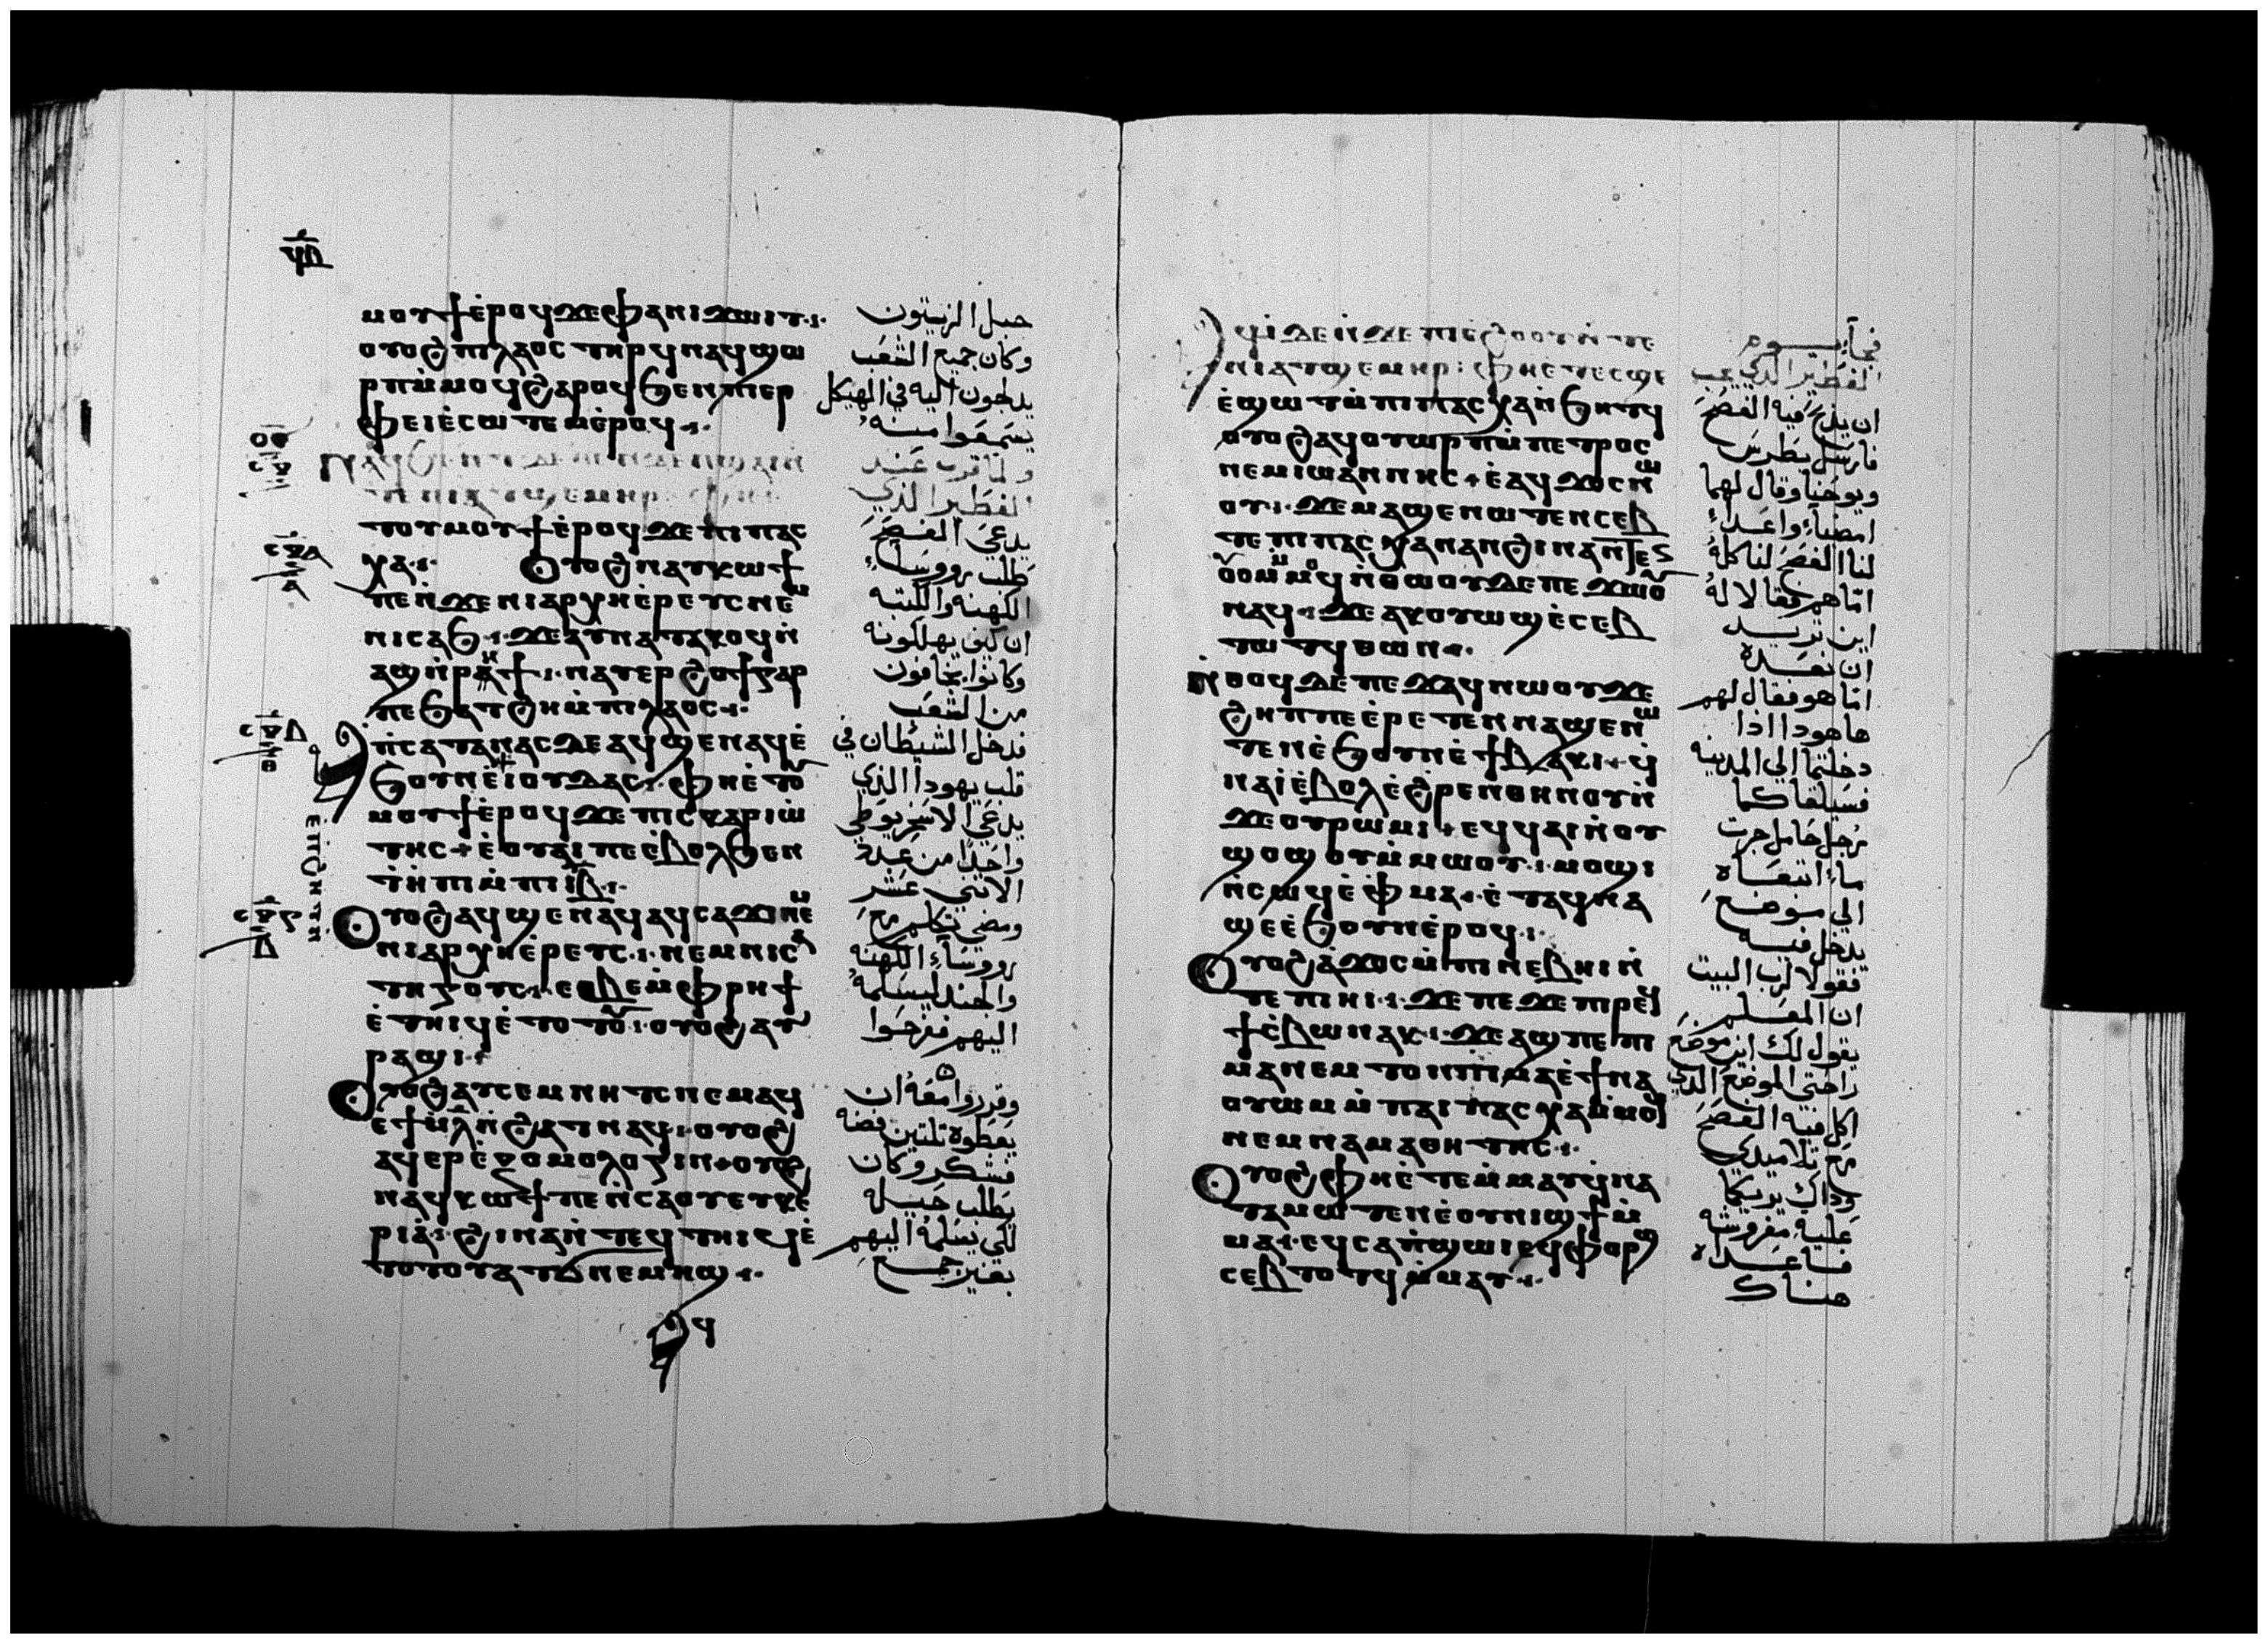 ⲙⲟⲩϯⲉ̀ⲣⲟϥϫⲉⲫⲁⲛⲓϫⲱⲓⲧ
ⲟⲩⲟϩⲡⲓⲗⲁⲟⲥⲧⲏⲣϥⲛⲁϥϣⲱ
ⲣⲡⲙ̀ⲙⲟϥϩⲁⲣⲟϥϧⲉⲛⲡⲓⲉⲣ
ⲫⲉⲓⲉ̀ⲥⲱⲧⲉⲙⲉ̀ⲣⲟϥ
ⲧⲟⲩⲙⲟⲩϯⲉ̀ⲣⲟϥϫⲉⲡⲓⲡⲁⲥ
ⲭⲁ ⲟⲩⲟϩⲛⲁⲩⲕⲱϯ
ⲡⲉⲛ̀ϫⲉⲛⲓⲁⲣⲭⲏⲉ̀ⲣⲉⲩⲥⲛⲉⲙ
ⲛⲓⲥⲁϧ ϫⲉⲁⲩⲛⲁⲧⲁⲕⲟϥⲛ̀
ⲁϣⲛ̀ⲣⲏϯ ⲛⲁⲩⲉⲣϩⲟϯⲅⲁⲣ
ⲡⲉϧⲁⲧϩⲏⲙ̀ⲡⲓⲗⲁⲟⲥ
ⲡ̀ⲥⲁⲧⲁⲛⲁⲥⲇⲉⲁϥϣⲉⲛⲁϥⲉ̀
ϧⲟⲩⲛⲉ̀ⲓⲟⲩⲇⲁⲥ ⲫⲏⲉ̀ⲧⲟⲩ
ⲙⲟⲩϯⲉ̀ⲣⲟϥϫⲉⲡⲓⲥⲕⲁⲣⲓⲱ̀
ⲧⲏⲥ ⲉ̀ⲟⲩⲁⲓⲡⲉⲉ̀ⲃⲟⲗϧⲉⲛ
ⲧ̀ⲏⲡⲓⲙ̀ⲡⲓⲓⲃ
ⲟⲩⲟϩⲁϥϣⲉⲛⲁϥⲁϥⲥⲁϫⲓⲛⲉⲙ
ⲛⲓⲁⲣⲭⲏⲉ̀ⲣⲉⲩⲥ ⲛⲉⲙⲛⲓⲥⲁ
ⲧⲏⲅⲟⲩⲥ ⲉⲑⲃⲉⲙ̀ⲫⲣⲏϯ
ⲉ̀ⲧⲏⲓϥⲉ̀ⲧⲟⲧⲟⲩ ⲟⲩⲟϩⲁⲩ
ⲣⲁϣⲓ
ⲟⲩⲟϩⲁⲩⲥⲉⲙⲛⲏⲧⲥⲛⲉⲙⲁϥ
ⲉϯⲙ̀ⲗ̅ⲛ̀ϩⲁⲧⲛⲁϥ ⲟⲩⲟϩ
ⲁϥⲉⲣⲉ̀ⲝⲟⲙⲟⲗⲟⲅⲓⲛ ⲟⲩⲟϩ
ⲛⲁϥⲕⲱϯⲡⲉⲛ̀ⲥⲁⲟⲩⲉⲩⲕⲉ
ⲣⲓⲁ̀ ϩⲓⲛⲁⲛ̀ⲧⲉϥⲧⲏⲓϥⲉ̀
ⲧⲟⲧⲟⲩⲁⲧϭⲛⲉⲙⲏϣ
جبل الزيتون
وكان جميع الشعب
يدلجون اليه في الهيكل
يسمعوا منه
ولما قرب عيد
الفطير الذي
يدعي الفصح
طلب رووساء
الكهنه والكتبه
ان كيف يهلكونه
وكانوا يخافون
من الشعب
فدخل الشيطان في
قلب يهودا الذي
يدعي الاسخريوطي
واحدا من عدة
الاثني عشر
ومضي تكلم مع
رووساء الكهنه
والجند ليسلمه
اليهم ففرحوا
وقرروا معه ان
يعطوه ثلثين فضه
فشكر وكان
يطلب حيله
لكي يسلمه اليهم
بغير جمع
ⲁϥⲓ̀ⲇⲉⲛ̀ϫⲉⲡⲓⲉ̀ϩⲟⲟⲩⲛ̀ⲧⲉ
ⲛⲓⲁⲧϣⲉⲙⲏⲣ ⲫⲏⲉ̀ⲧⲉⲥϣⲉ
ⲉ̀ϣⲱⲧⲙ̀ⲡⲓⲡⲁⲥⲭⲁⲛ̀ϧⲏⲧϥ
ⲟⲩⲟϩⲁϥⲟⲩⲱⲣⲡⲙ̀ⲡⲉⲧⲣⲟⲥ
ⲛⲉⲙⲓⲱⲁⲛⲛⲏⲥ ⲉ̀ⲁϥϫⲟⲥⲛⲱ
ⲟⲩ ϫⲉⲙⲁϣⲉⲛⲱⲧⲉⲛⲥⲉⲃ
ⲧⲉⲡⲓⲡⲁⲥⲭⲁⲛⲁⲛϩⲓⲛⲁⲛⲧⲉⲛ
ⲟⲩⲟⲙϥ ⲛ̀ⲑⲱⲟⲩⲇⲉⲡⲉϫⲱⲟⲩ
ⲛⲁϥ ϫⲉⲁⲕⲟⲩⲱϣⲉ̀ⲥⲉⲃ
ⲧⲱⲧϥⲑⲱⲛ
ⲛ̀ⲑⲟϥⲇⲉⲡⲉϫⲁϥⲛⲱⲟⲩϫⲉ
ϩⲏⲡⲡⲉⲉ̀ⲣⲉⲧⲉⲛⲛⲁϣⲉⲛⲱ
ⲧⲉⲛⲉ̀ϧⲟⲩⲛⲉ̀ϯⲃⲁⲕⲓ ϥ̀
ⲛⲁⲓ̀ⲉ̀ⲃⲟⲗⲉ̀ϩⲣⲉⲛⲑⲏⲛⲟⲩⲛ̀
ϫⲉⲟⲩⲣⲱⲙⲓ ⲉϥϥⲁⲓⲛ̀ⲟⲩ
ϣⲟϣⲟⲩⲙ̀ⲙⲱⲟⲩ ⲙⲟϣⲓ
ⲛ̀ⲥⲱϥⲉ̀ⲫⲙⲁ ⲉ̀ⲧⲁϥⲛⲁ
ϣⲉⲉ̀ϧⲟⲩⲛⲉ̀ⲣⲟϥ
ⲟⲩⲟϩⲁ̀ϫⲟⲥⲙ̀ⲡⲓⲛⲉⲃⲏⲓⲛ̀
ⲧⲉⲡⲓⲏⲓ ϫⲉⲡⲉϫⲉⲡⲓⲣⲉϥ
ϯⲥ̀ⲃⲱⲛⲁⲕ ϫⲉⲁϣⲡⲉⲡⲓ
ⲙⲁⲛⲉⲙⲧⲟⲛⲡⲓⲙⲁⲉ̀ϯⲛⲁ
ⲟⲩⲱⲙⲙ̀ⲡⲁⲓⲡⲁⲥⲭⲁⲙ̀ⲙⲟϥ
ⲛⲉⲙⲛⲁⲙⲁⲑⲏⲧⲏⲥ
ⲟⲩⲟϩⲫⲏⲉ̀ⲧⲉⲙ̀ⲙⲁⲩϥ̀ⲛⲁ
ⲧⲁⲙⲱⲧⲉⲛⲉ̀ⲟⲩⲛⲓϣϯⲙ̀
ⲙⲁ ⲉϥⲥⲁⲡ̀ϣⲱⲓⲉϥⲫⲟⲣϣ
ⲥⲉⲃⲧⲟⲧϥⲙ̀ⲙⲁⲩ
فجاء يوم
الفطير الذي يجب
ان يذبح فيه الفصح
فارسل بطرس
ويوحنا وقال لهما
امضيا واعدا
لنا الفصح لنا كله
اما هم فقالا له
اين تريد
ان نعده
اما هو فقال لهم
ها هودا اذا
دخلتما الي المدينه
فسيلقاكما
رجل حامل جرت
ماء اتبعاه
الي موضع
يدخل فيه
فقولا لرب البيت
ان المعلم
يقول لك اين موضع
راحتي الموضع الذي
اكل فيه الفصح
مع تلاميدي
وداك يريكما
عليه مفروشه
فاعداه
هناك